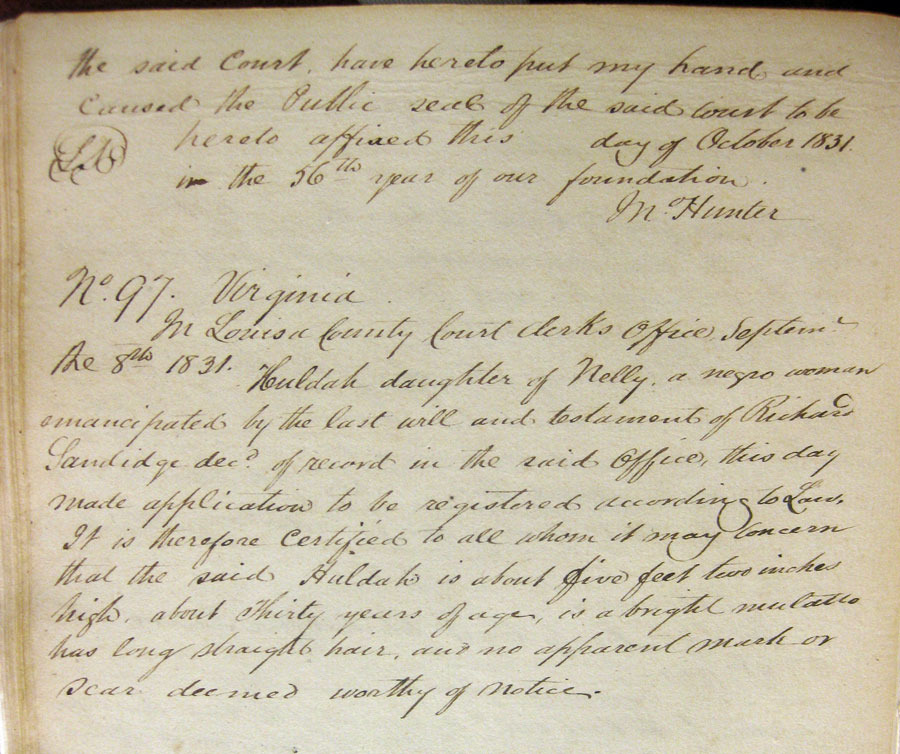 the said Court, have hereto put my hand and
Caused the Public seal of the said Court to be
hereto affixed this day of October 1831.
LS
in the 56th year of our foundation.
Jno Hunter
No. 97. Virginia
In Louisa County Court Clerks Office, Septemr
the 8th 1831.
Huldah daughter of Nelly, a negro woman
emancipated by the last will and testament of Richard
Sandidge decd. of record in the said Office, this day
made application to be registered according to Law.
It is therefore Certified to all whom it may Concern
that the said Huldah is about five feet two inches
high, about Thirty years of age, is a bright mulatto
has long straight hair, and no apparent mark or
scar deemed worthy of notice.